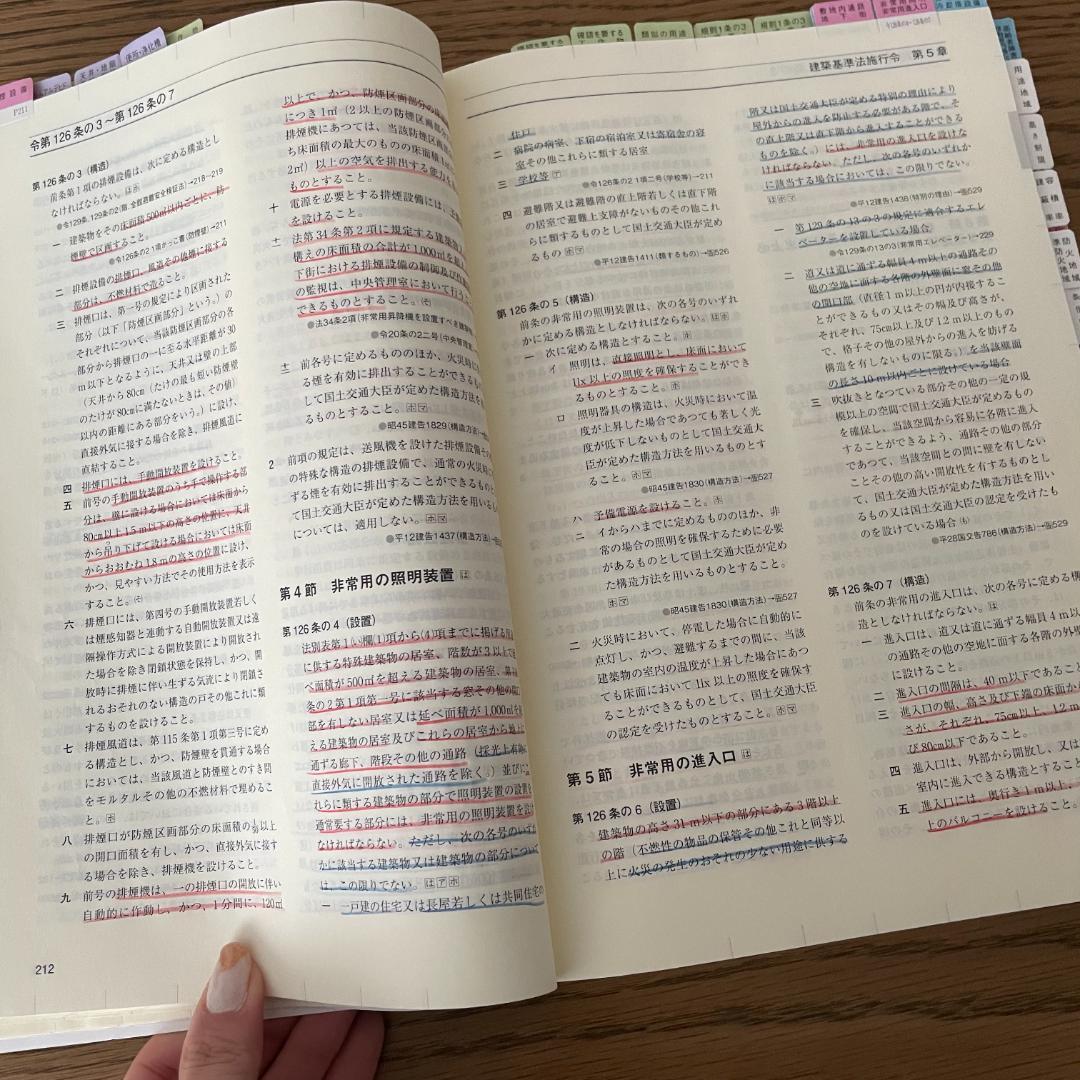 敷地内通路
地下街
非常用進入口
用途地域
高さ制限
天井・地階
便所・浄化槽
確認を要する
類似の用途
規則1条の3
規則1条の3
P211
令第126条の3〜第126条の7
建築基準法施行令 第5章
第126条の3（構造）
前条第1項の排煙設備は、次に定める構造とし
なければならない。
●令129条、129条の2(階、全館避難安全検証法)→218〜219
一 建築物をその床面積500㎡以内ごとに、防
煙壁で区画すること。
●令126条の2 1項かっこ書(防煙壁)→211
二 排煙設備の排煙口、風道その他煙に接する
部分は、不燃材料で造ること。
三 排煙口は、第一号の規定により区画された
部分（以下「防煙区画部分」という。）の
それぞれについて、当該防煙区画部分の各
部分から排煙口の一に至る水平距離が30
m以下となるように、天井又は壁の上部
（天井から80㎝（たけの最も短い防煙壁
のたけが80㎝に満たないときは、その値）
以内の距離にある部分をいう。）に設け、
直接外気に接する場合を除き、排煙風道に
直結すること。
四 排煙口には、手動開放装置を設けること。
五 前号の手動開放装置のうち手で操作する部
分は、壁に設ける場合においては床面から
80㎝以上1.5m以下の高さの位置に、天井
から吊り下げて設ける場合においては床面
からおおむね1.8mの高さの位置に設け、
かつ、見やすい方法でその使用方法を表示
すること。
六 排煙口には、第四号の手動開放装置若しく
は煙感知器と連動する自動開放装置又は遠
隔操作方式による開放装置により開放され
た場合を除き閉鎖状態を保持し、かつ、開
放時に排煙に伴い生ずる気流により閉鎖さ
れるおそれのない構造の戸その他これに類
するものを設けること。
七 排煙風道は、第115条第1項第三号に定め
る構造とし、かつ、防煙壁を貫通する場合
においては、当該風道と防煙壁とのすき間
をモルタルその他の不燃材料で埋めるこ
と。
八 排煙口が防煙区画部分の床面積の1/50以上
の開口面積を有し、かつ、直接外気に接す
る場合を除き、排煙機を設けること。
九 前号の排煙機は、一の排煙口の開放に伴い
自動的に作動し、かつ、1分間に、120㎥
212
以上で、かつ、防煙区画部分の床
につき1㎥（2以上の防煙区画部分
排煙機にあつては、当該防煙区画部
ち床面積の最大のものの床面積1
2㎥）以上の空気を排出する能力を
ものとすること。
十 電源を必要とする排煙設備には、
を設けること。
十一 法第34条第2項に規定する建築物
構えの床面積の合計が1,000㎡を
下街における排煙設備の制御及び
の監視は、中央管理室において行う
できるものとすること。
●法34条2項(非常用昇降機を設置すべき建築
●令20条の2二号(中央管理
十二 前各号に定めるもののほか、火災時
る煙を有効に排出することができるもの
して国土交通大臣が定めた構造方法を
るものとすること。
●昭45建告1829(構造方法)
2 前項の規定は、送風機を設けた排煙設備
の特殊な構造の排煙設備で、通常の火災時
ずる煙を有効に排出することができるものと
て国土交通大臣が定めた構造方法を用いるもの
については、適用しない。
●平12建告1437(構造方法)
第4節 非常用の照明装置
第126条の4（設置）
法別表第1(い)欄(1)項から(4)項までに掲げる用途
に供する特殊建築物の居室、階数が3以上で
べ面積が500㎡を超える建築物の居室、第
条の2第1項第一号に該当する窓その他の
部を有しない居室又は延べ面積が1,000㎡を
える建築物の居室及びこれらの居室から地上
通ずる廊下、階段その他の通路（採光上有効に
直接外気に開放された通路を除く。）並びに
れらに類する建築物の部分で照明装置の設置を
通常要する部分には、非常用の照明装置を設け
なければならない。ただし、次の各号のいず
かに該当する建築物又は建築物の部分につい
は、この限りでない。
一 一戸建の住宅又は長屋若しくは共同住宅の
住戸
二 病院の病室、下宿の宿泊室又は寄宿舎の寝
室その他これらに類する居室
三 学校等
●令126条の2 1項二号(学校等)→211
四 避難階又は避難階の直上階若しくは直下階
の居室で避難上支障がないものその他これ
らに類するものとして国土交通大臣が定め
るもの
●平12建告1411(類するもの)→526
第126条の5（構造）
前条の非常用の照明装置は、次の各号のいずれ
かに定める構造としなければならない。
一 次に定める構造とすること。
イ 照明は、直接照明とし、床面において
1lx以上の照度を確保することができ
るものとすること。
ロ 照明器具の構造は、火災時において温
度が上昇した場合であつても著しく光
度が低下しないものとして国土交通大
臣が定めた構造方法を用いるものとす
ること。
●昭45建告1830(構造方法)→527
ハ 予備電源を設けること。
ニ イからハまでに定めるもののほか、非
常の場合の照明を確保するために必要
があるものとして国土交通大臣が定め
た構造方法を用いるものとすること。
●昭45建告1830(構造方法)→527
二 火災時において、停電した場合に自動的に
点灯し、かつ、避難するまでの間に、当該
建築物の室内の温度が上昇した場合にあつ
ても床面において1lx以上の照度を確保す
ることができるものとして、国土交通大臣
の認定を受けたものとすること。
第5節 非常用の進入口
第126条の6（設置）
建築物の高さ31m以下の部分にある3階以上
の階（不燃性の物品の保管その他これと同等以
上に火災の発生のおそれの少ない用途に供する
階又は国土交通大臣が定める特別の理由により
屋外からの進入を防止する必要がある階で、そ
の直上階又は直下階から進入することができる
ものを除く。）には、非常用の進入口を設けな
ければならない。ただし、次の各号のいずれか
に該当する場合においては、この限りでない。
●平12建告1438(特別の理由)→529
一 第129条の13の3の規定に適合するエレ
ベーターを設置している場合
●令129条の13の3(非常用エレベーター)→229
二 道又は道に通ずる幅員4m以上の通路その
他の空地に面する各階の外壁面に窓その他
の開口部（直径1m以上の円が内接するこ
とができるもの又はその幅及び高さが、
それぞれ、75㎝以上及び1.2m以上のもの
で、格子その他の屋外からの進入を妨げる
構造を有しないものに限る。）を当該壁面
の長さ10m以内ごとに設けている場合
三 吹抜きとなつている部分その他の一定の規
模以上の空間で国土交通大臣が定めるもの
を確保し、当該空間から容易に各階に進入
することができるよう、通路その他の部分
であつて、当該空間との間に壁を有しない
ことその他の高い開放性を有するものとし
て、国土交通大臣が定めた構造方法を用い
るもの又は国土交通大臣の認定を受けたも
のを設けている場合
●平28国交告786(構造方法)→529
第126条の7（構造）
前条の非常用の進入口は、次の各号に定める構
造としなければならない。
一 進入口は、道又は道に通ずる幅員4m
の通路その他の空地に面する各階の外壁
に設けること。
二 進入口の間隔は、40m以下であること
三 進入口の幅、高さ及び下端の床面か
さが、それぞれ、75㎝以上、1.2m
び80㎝以下であること。
四 進入口は、外部から開放し、又は
室内に進入できる構造とすること
五 進入口には、奥行き1m以上、
上のバルコニーを設けること。